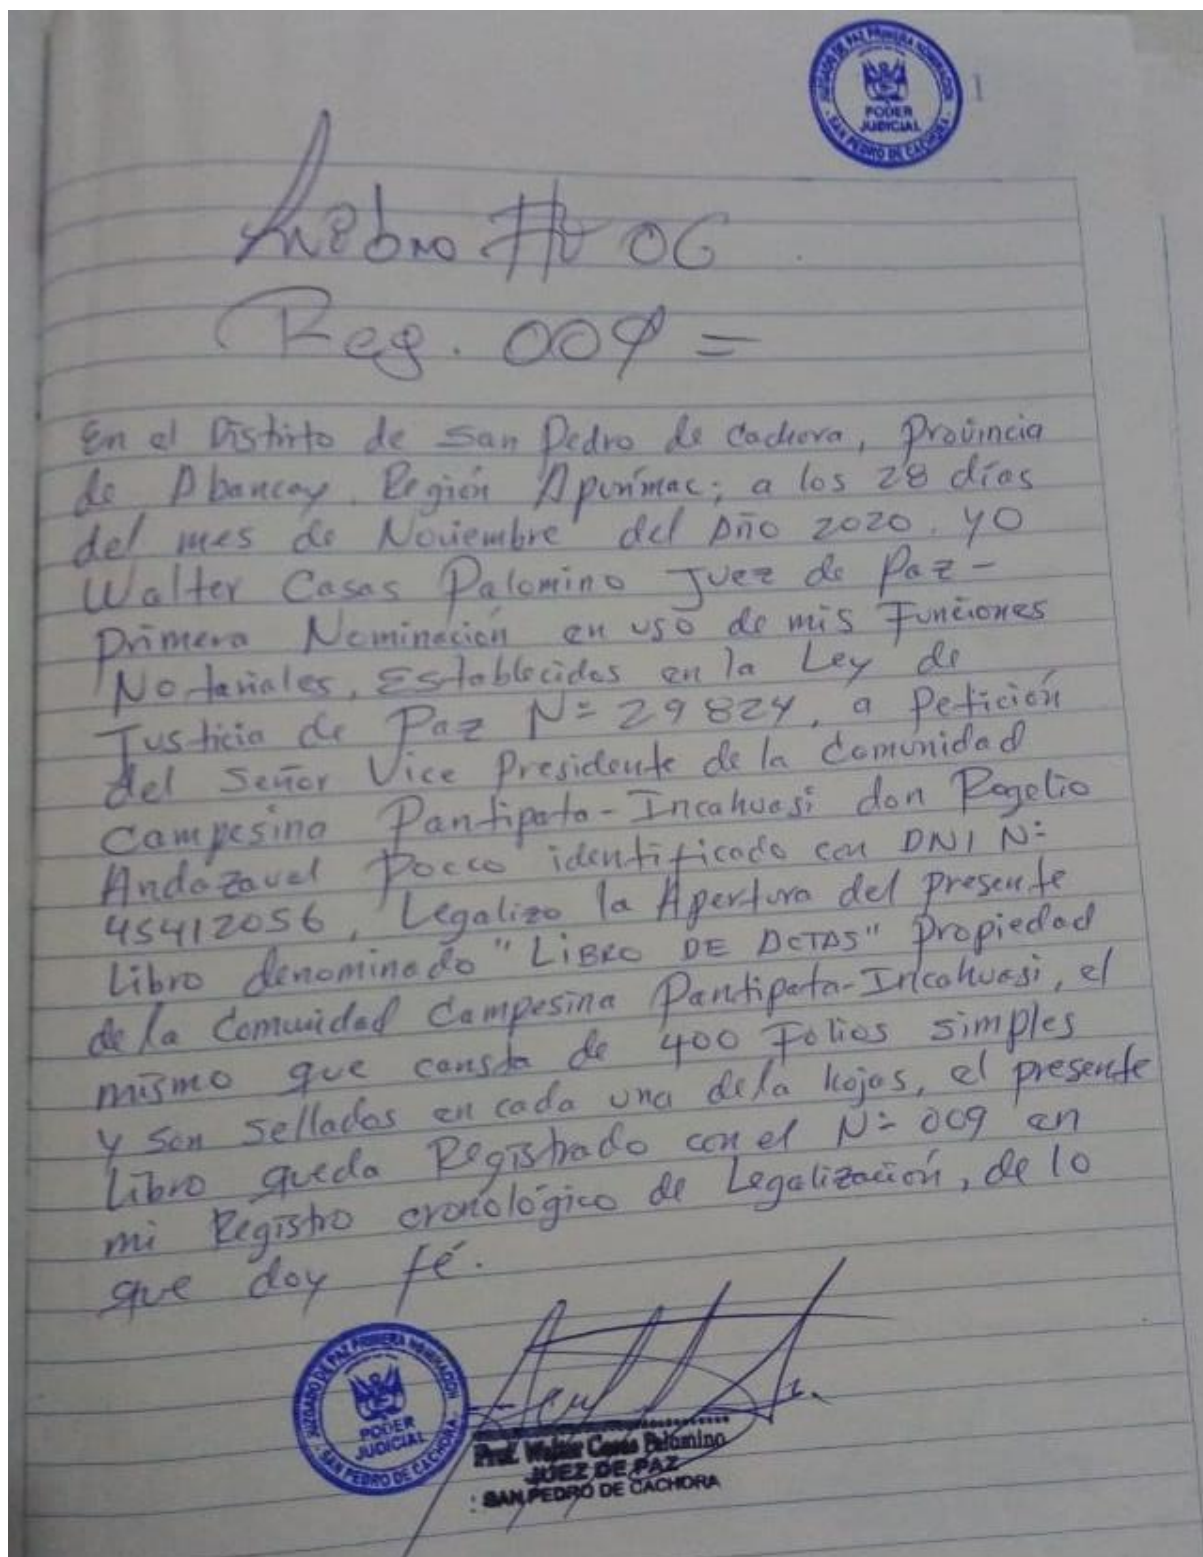 JUZGADO DE PAZ PRIMERA NOMINACION
PODER
JUDICIAL
SAN PEDRO DE CACHORA
1
Libro Nº 06
Reg. 009 =
En el Distrito de San Pedro de Cachora, Provincia
de Abancay Región Apurímac; a los 28 días
del mes de Noviembre del Año 2020. yo
Walter Casas Palomino Juez de Paz -
Primera Nominación en uso de mis Funciones
Notariales, Establecidas en la Ley de
Justicia de Paz Nº 29824, a Petición
del Señor Vice Presidente de la Comunidad
Campesina Pantipata-Incahuasi don Rogelio
Andazaval Pocco identificado con DNI Nº
45412056, Legalizo la Apertura del presente
Libro denominado "LIBRO DE ACTAS" Propiedad
de la Comunidad Campesina Pantipata-Incahuasi, el
mismo que consta de 400 Folios simples
y son sellados en cada una dela hojas, el presente
Libro queda Registrado con el Nº 009 en
mi Registro cronológico de Legalización, de lo
que doy fé.
JUZGADO DE PAZ PRIMERA NOMINACION
PODER
JUDICIAL
SAN PEDRO DE CACHORA
Prof. Walter Casas Palomino
JUEZ DE PAZ
SAN PEDRO DE CACHORA